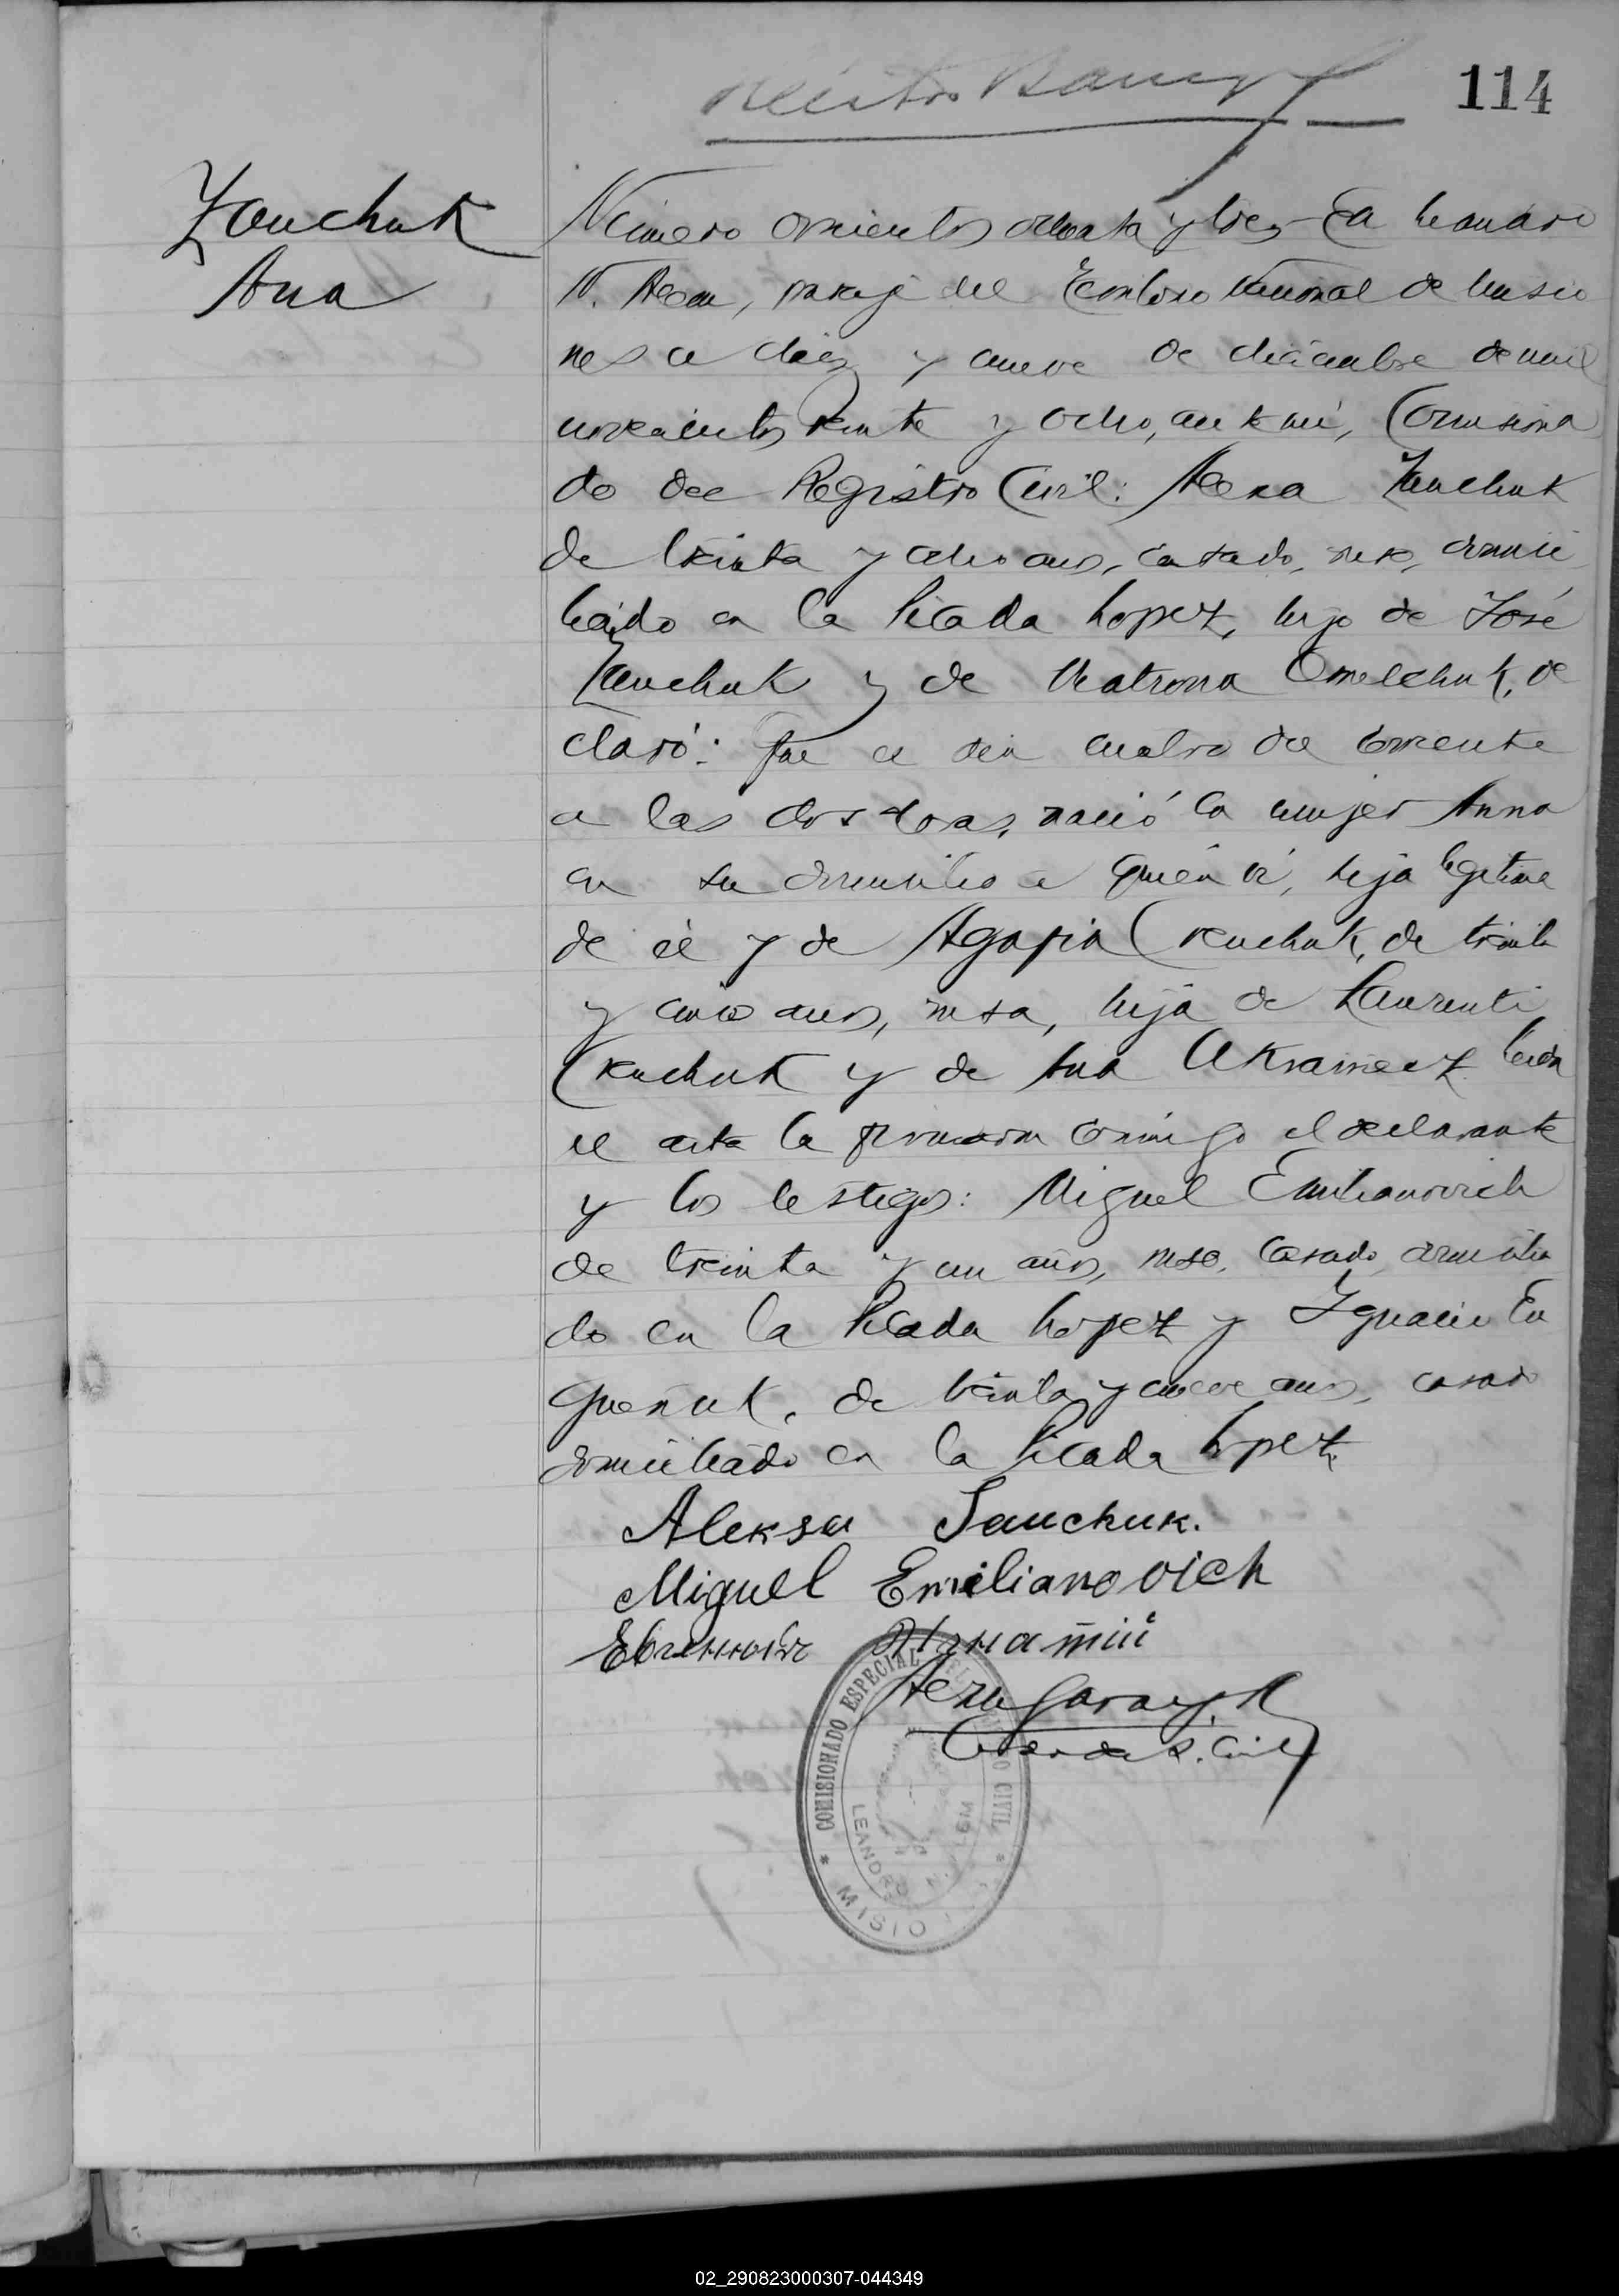 114
Zauchuk
Ana
Número doscientos ochenta y tres En Leandro
N. Alem, paraje del Territorio Nacional de Misio
nes a diez y nueve de diciembre de mil
novecientos veinte y ocho, ante mí, Comisiona
do del Registro Civil: Alexa Zauchuk
de treinta y ocho años, casado, ruso, domici
liado en la Picada Lopez, hijo de José
Zauchuk y de Matrona Omelchuk, de
claró: Que el día cuatro del corriente
a las dos horas, nació la mujer Anna
en su domicilio a quién ví, hija legítima
de él y de Agapia Crenchuk, de treinta
y cinco años, rusa, hija de Laurenti
Crenchuk y de Ana Ukrainetz. Leida
el acta la firmaron conmigo el declarante
y los testigos: Miguel Emilianovich
de treinta y un años, ruso, casado, domicilia
do en la Picada Lopez y Ignacio
de treinta y nueve años, casado
domiciliado en la Picada Lopez.
Aleksa Sauchuk.
Miguel Emilianovich
COMISIONADO ESPECIAL DEL REGISTRO CIVIL
LEANDRO N. ALEM
* MISIONES *
02_290823000307-044349